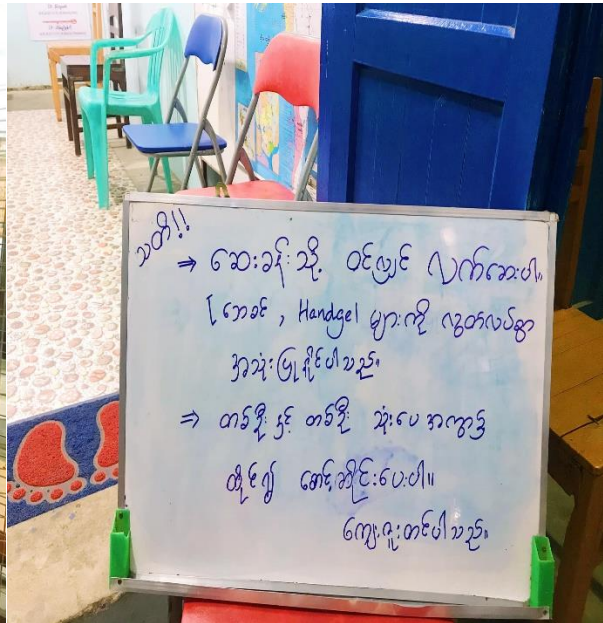 သတိ!!
⇒ ဆေးခန်းသို့ ဝင်လျှင် လက်ဆေးပါ။
[ဘေစင်, Handgel များကို လွတ်လပ်စွာ
အသုံးပြုနိုင်ပါသည်။
⇒ တစ်ဦးနှင့် တစ်ဦး သုံးပေအကွာ၌
ထိုင်၍ စောင့်ဆိုင်းပေးပါ။
ကျေးဇူးတင်ပါသည်။